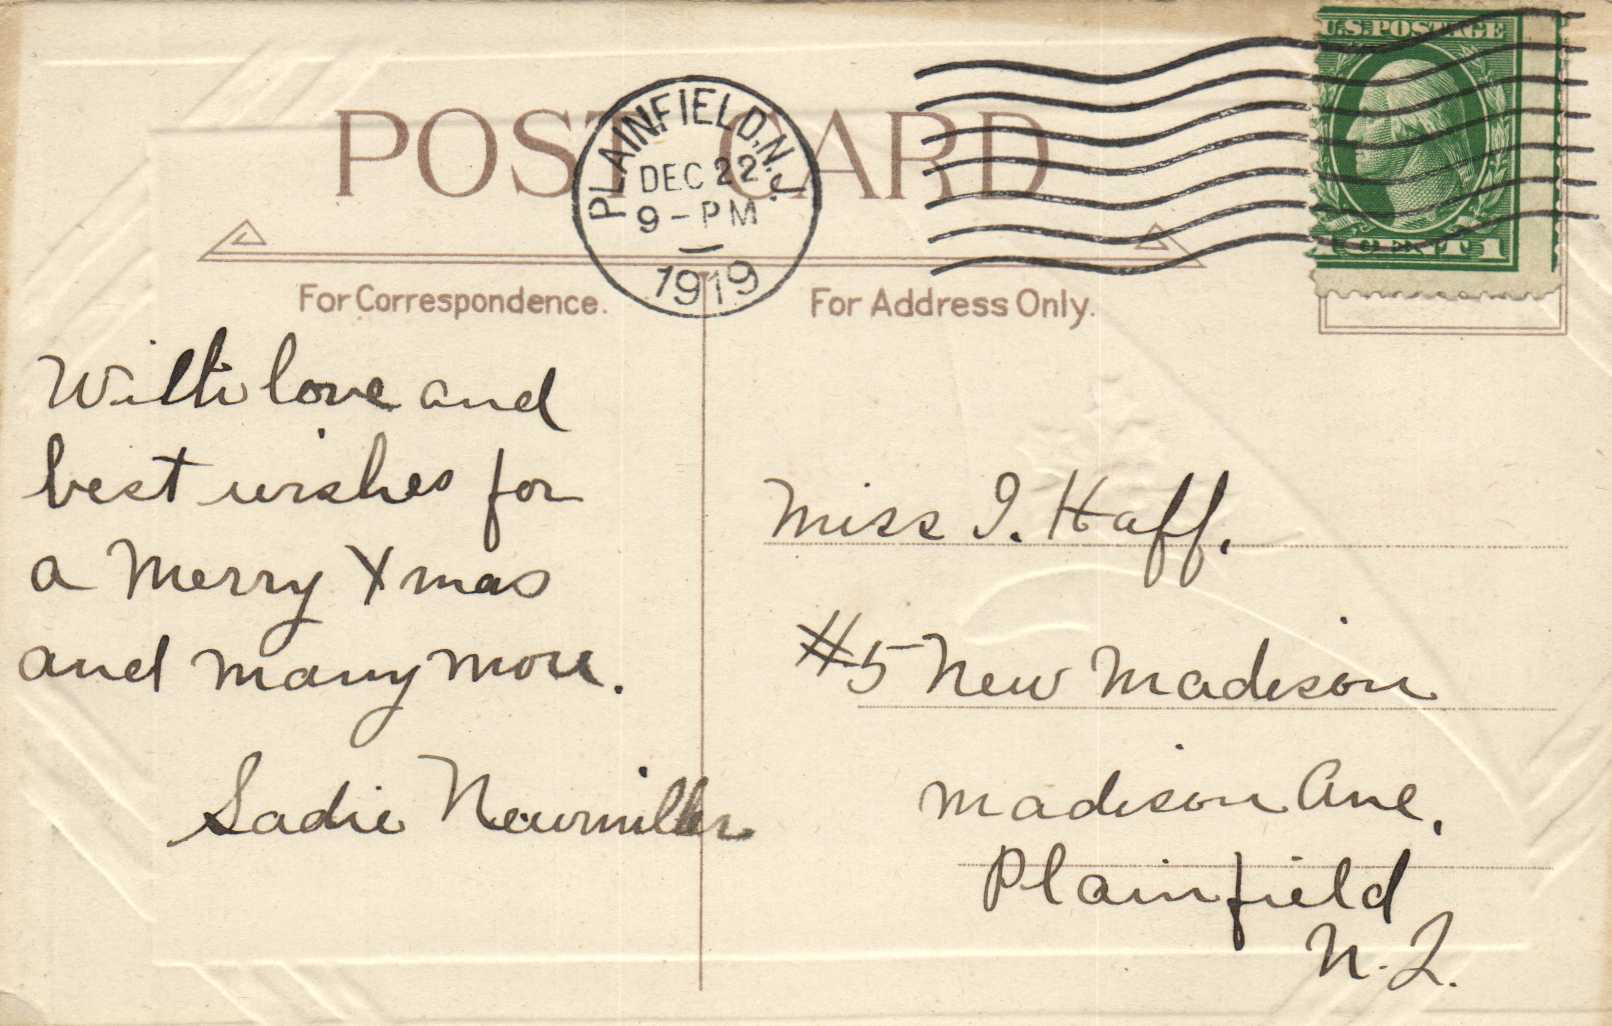 U.S. POSTAGE
POST CARD
PLAINFIELD, N.J.
DEC 22
9-PM
1919
For Correspondence.
For Address Only.
With love and
best wishes for
a Merry Xmas
and many more.
Sadie Newmiller
Miss I. Haff.
#5 New Madison
Madison Ave,
Plainfield
N. J.